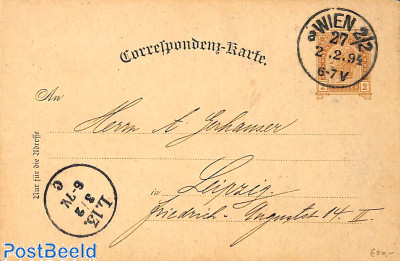 WIEN 2/2
a
27
2.2.94
6-7V
2 2
Correspondenz-Karte.
An
Herrn A
Nur für die Adresse
in Leipzig
Friedrich-Auguststr 14 II.
L.13.
3/2
6-7V
c
PostBeeld